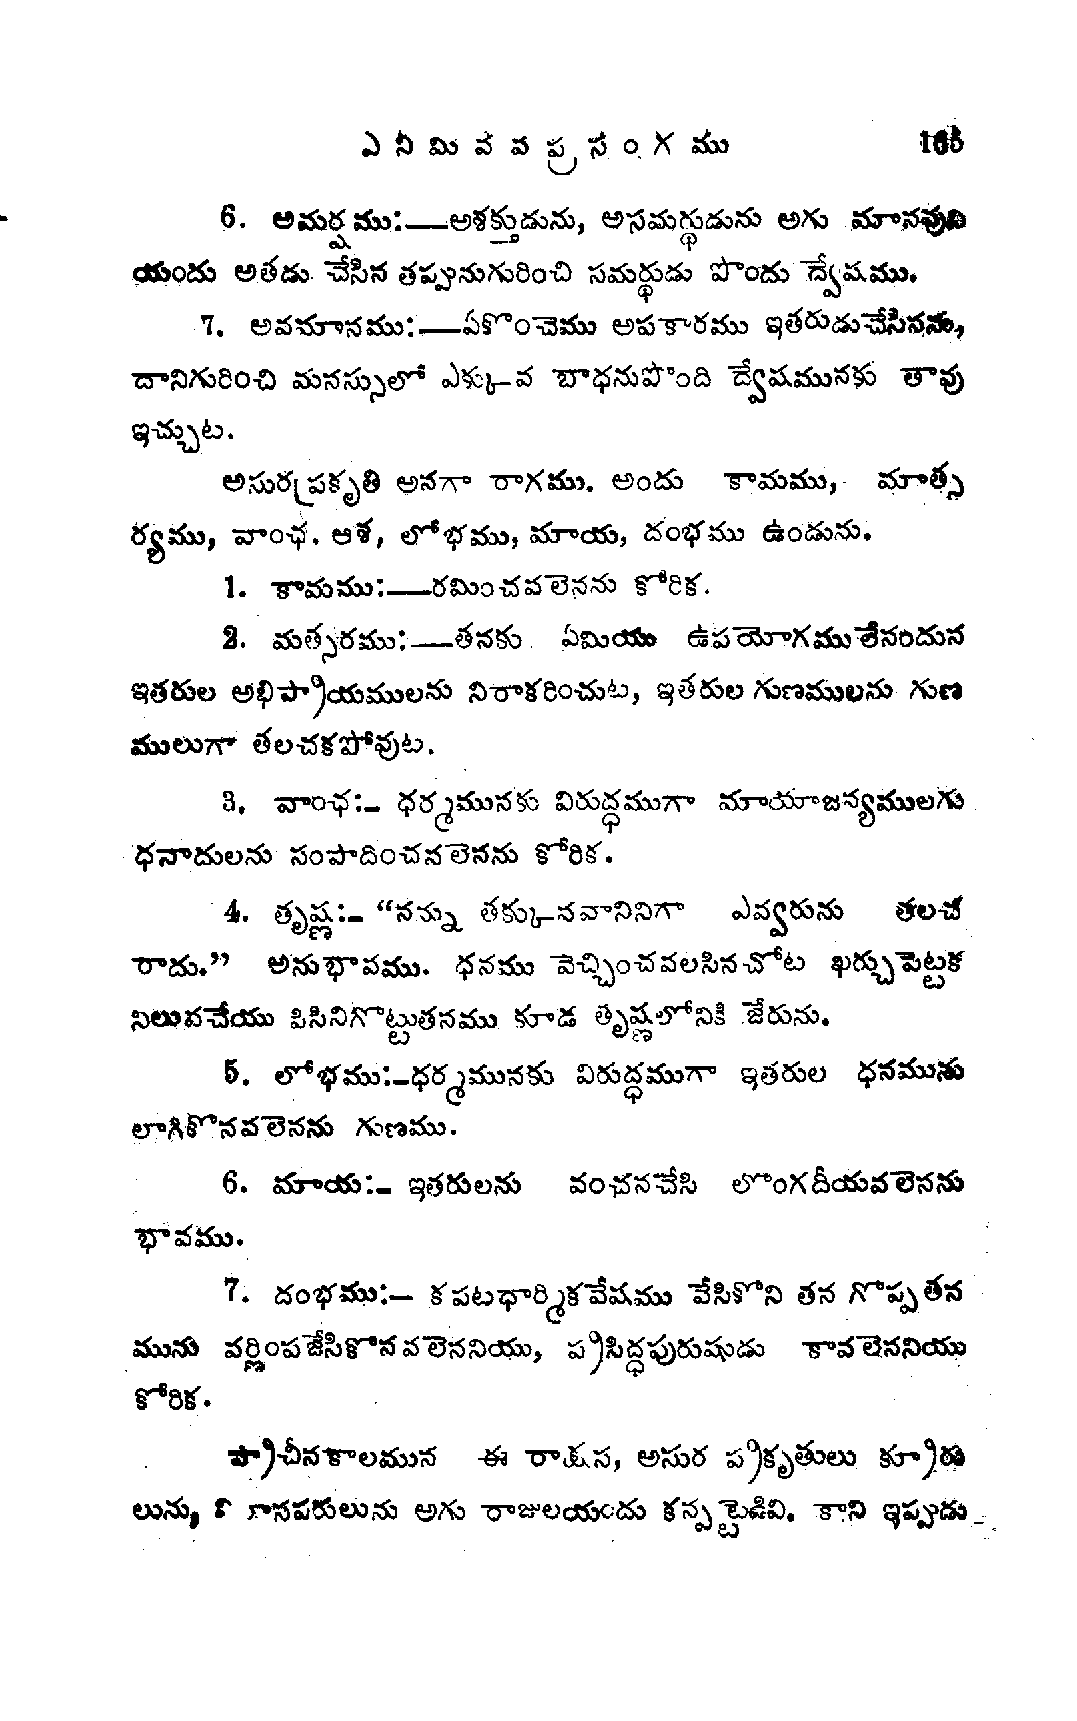 ఎనిమిదవ ప్రసంగము
6. అమర్షము:—అశక్తుడును, అసమర్థుడును అగు మానవుని
యందు అతడు చేసిన తప్పునుగురించి సమర్థుడు పొందు ద్వేషము.
7. అవమానము:—ఏకొంచెము అపకారము ఇతరుడుచేసినను,
దానిగురించి మనస్సులో ఎక్కువ బాధనుపొంది ద్వేషమునకు తావు
ఇచ్చుట.
అసురప్రకృతి అనగా రాగము. అందు కామము, మాత్స
ర్యము, వాంఛ. ఆశ, లోభము, మాయ, దంభము ఉండును.
1. కామము:—రమించవలెనను కోరిక.
2. మత్సరము:—తనకు ఏమియు ఉపయోగములేనందున
ఇతరుల అభిప్రాయములను నిరాకరించుట, ఇతరుల గుణములను గుణ
ములుగా తలచకపోవుట.
3. వాంఛ:- ధర్మమునకు విరుద్ధముగా మాయాజన్యములగు
ధనాదులను సంపాదించనలెనను కోరిక.
4. తృష్ణ:- “నన్ను తక్కునవానినిగా ఎవ్వరును తలచ
రాదు.” అనుభావము. ధనము వెచ్చించవలసినచోట ఖర్చుపెట్టక
నిలువచేయు పిసినిగొట్టుతనము కూడ తృష్ణలోనికి జేరును.
5. లోభము:-ధర్మమునకు విరుద్ధముగా ఇతరుల ధనమును
లాగికొనవలెనను గుణము.
6. మాయ:- ఇతరులను వంచనచేసి లొంగదీయవలెనను
భావము.
7. దంభము:— కపటధార్మికవేషము వేసికొని తన గొప్పతన
మును వర్ణింపజేసికొనవలెననియు, ప్రసిద్ధపురుషుడు కావలెననియు
కోరిక.
ప్రాచీనకాలమున ఈ రాక్షస, అసుర ప్రకృతులు క్రూరు
లును, అగు రాజులయందు కన్పట్టెడివి. కాని ఇప్పుడు